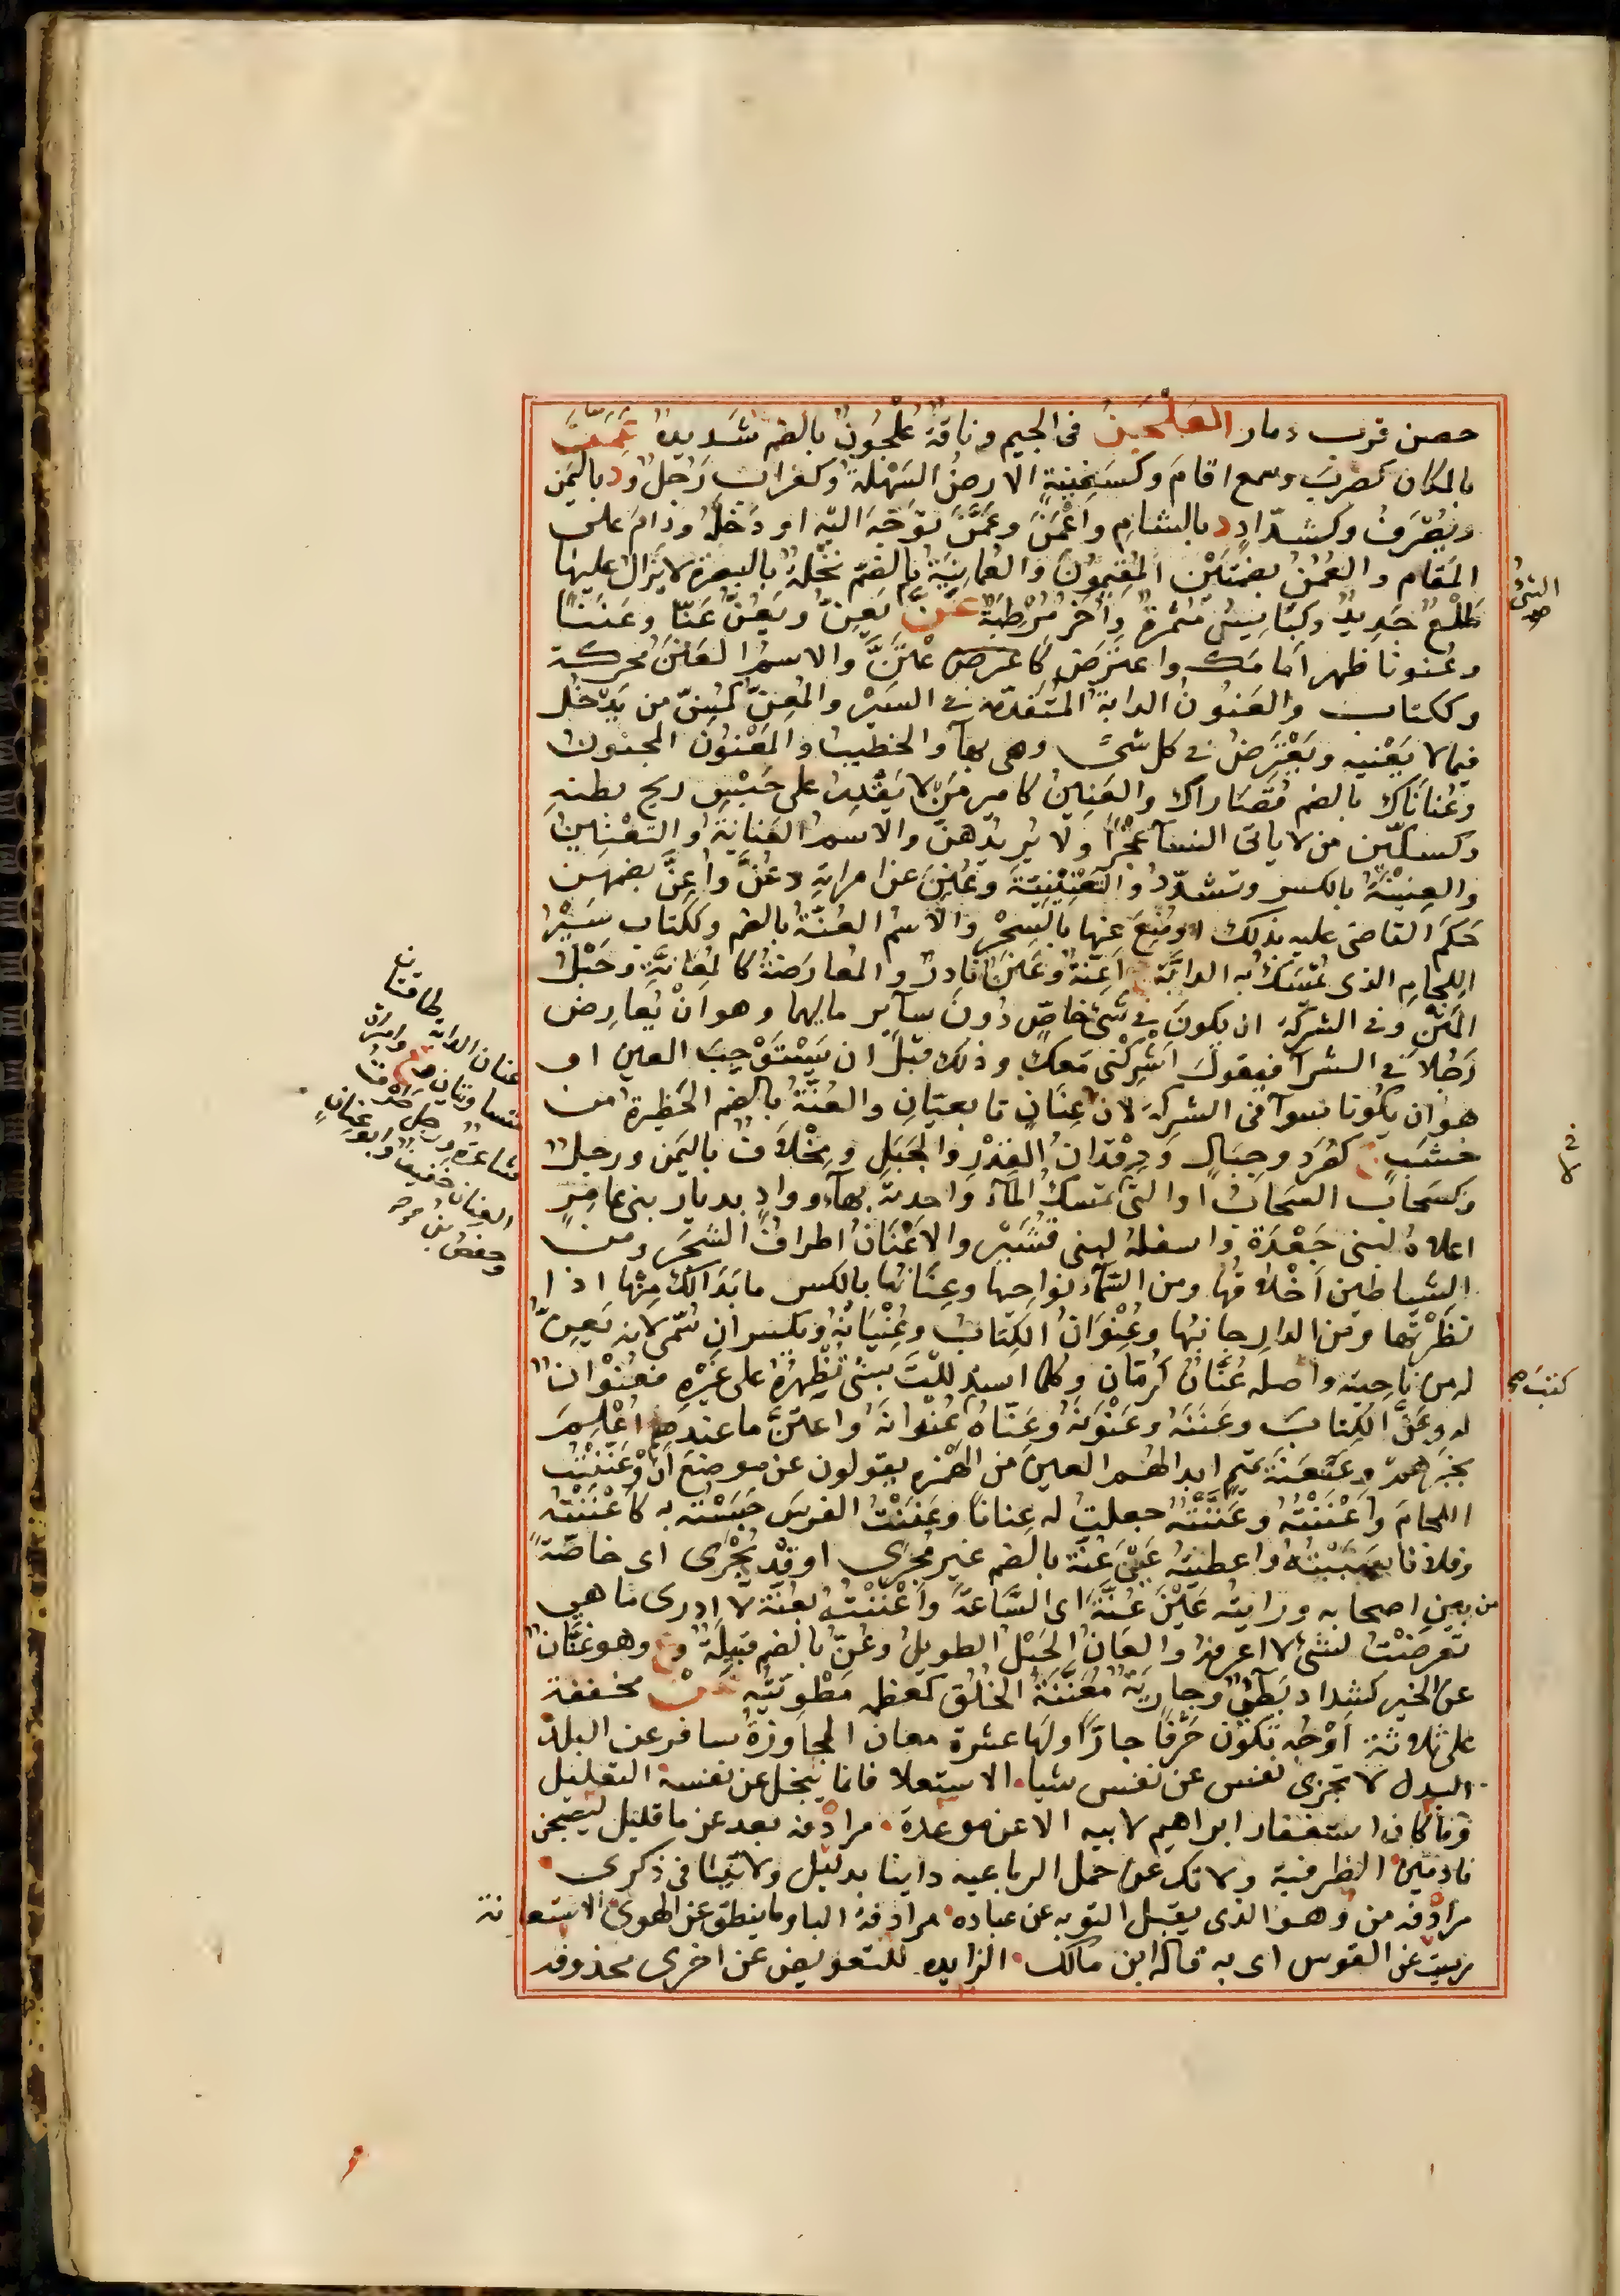 حصن قرب ذمار العَلْجَنُ فى الجيم وناقة عُلْجُونٌ بالضم شديدة عَمَنَ
بالمكان كضرب وسمع اقام وكسَفِينةٍ الارضُ السَهْلةُ وكغراب رَجلٌ ود باليمن
ويُصْرَفُ وكشدّادٍ د بالشامِ واَعْمَنَ وعَمَّنَ توَجّهَ اليه او دَخَلَهُ ودَامَ على
المَقام والعُمُنُ بضمتَيْن المُقِيمُونَ والعُمانِيَّةُ بالضَمّ نَخْلَةٌ بالبصرة لا يَزَالُ عليها
طَلْعٌ جَدِيدٌ وكَبَايسُ مُثْمِرَةٌ وأُخَرُ مُرْطِبَةٌ عَنَّ يَعِنُّ ويَعُنُّ عَنًّا وعَنَنًا
وعُنونا ظهر اَمامَك واعترَضَ كاعْتَنَّ والاسمُ العَنَنُ محركة
وككتاب والعَنُونُ الدابةُ المُتَقَدّمة فى السَيْر والمِعَنُّ كمِسَنّ من يَدْخُل
فيما لا يَعْنيه ويَعْتَرِضُ فى كل شىءٍ وهى بهاءٍ والخطيبُ والمَعْنُونُ المجنون
وعُنانَاكَ بالضم قُصَاراك والعَنِينُ كامير مَنْ لا يَقْدِرُ على حَبْسِ ريح بطنِه
وكسكّين من لا ياتى النسآءَ عَجْزًا او لا يُرِيدُهنّ والاسمُ العَنانَةُ والتَعْنِينُ
والعِنِّينَةُ بالكسر وتشدّدُ والتَعْنِينِيَّةُ وعُنِّنَ عن امراتِه وعُنَّ واُعِنَّ بضمهن
حَكَمَ القاضى عليه بذلك او مُنِعَ عنها بالسِحْرِ والاسْمُ العُنَّةُ بالضم وككتابٍ سَيْرُ
اللِجامِ الذى تُمْسَكُ به الدابَّةُ ج اَعِنَّةٌ وعُنُنٌ نادِرٌ والمعارَضَةُ كالمُعَانَّةِ وحَبْلُ
المَتْنِ وفى الشركة ان يكونَ فى شَىءٍ خاصٍّ دُونَ سآيرِ مالِهما وهو اَنْ يُعارِضَ
رَجُلاً فى الشرآ فيقولَ اَشْرِكْنى مَعَكَ وذلك قَبْلَ ان يَسْتَوْجِبَ العين او
هو ان يكُونا سوآءً فى الشركة لان عِنَانَ تا بعتان والعُنّةُ بالضم الحَظِيرةُ من
خشَبٍ ج كصُرَدٍ وجِبَالٍ ودِقْدانُ القِدْرِ والحَبْلُ ومِخْلافٌ باليَمَن ورجلٌ
وكسَحابٍ السَحابُ او التى تمسك المآءَ واحدته بهآءٍ ووادٍ بديار بنى عامِرٍ
اعلاهُ لبنى جَعْدَةَ واسفلُهُ لبنى قُشَيْر والاَعْنَانُ اطرافُ الشجَر ومن
الشياطين اَخْلاقُها ومن السَمآءِ نواحِيها وعِنَانُها بالكسر ما بَدَا لكَ مِنْها اذا
نظَرْتها ومن الدارِ جانِبُها وعُنْوَانُ الكِتابِ وعُنْيَانُهُ ويكسران سُمّى لانه يَعِنُّ
له من ناحِيته واصله عُنَّانٌ كرُمّان وكلما استدللتَ بشئ تُظْهِرُهُ على غَيْرِهِ فعُنْوانٌ
له وعَنَّ الكِتابَ وعَنَّنَهُ وعَنْوَنَهُ وعَنَّاهُ عُنْوانَهُ واعتَنَّ ما عندهم اُعْلِمَ
بخَبَرِهمْ وعَنْعَنَةُ تَمِيمٍ ابدالُهُم العينَ من الهَمْزه يقولون عن موضِعَ اَنّ وعَنَنْتُ
اللجامَ واَعْنَنْتُهُ وعَنَّنْتُهُ جعلتُ له عِنانًا وعَنَنْتُ الفرسَ حَبَسْتُه به كاَعْنَنْتُه
وفلانا سَبَبْتُهُ واعطيتُهُ عَيْنَ عُنَّةَ بالضم غيرَ مُجْرًى اوقَدْ يُجْرَى اى خاصّةً
من بين اصحابه ورايتُه عَيْنَ عُنَّةَ اى السَّاعَةَ واَعْنَنْتُ بعُنَّةٍ لا ادرى ما هى
تعرضْتُ لشئ لا اعرفه والعَانُّ الحَبْلُ الطويلُ وعُنٌّ بالضم قبيلَةٌ وع وهو عَنَّانٌ
عن الخير كشداد بَطِىءٌ وجارِيَةٌ مُعَنَّنَةُ الخَلْقِ كمعظمة مَطْوِيَّتُه عَنْ مخففة
على ثلاثة اَوْجُهٍ تكون حَرْفًا جارًّا ولها عشرة معان المجاوزةُ سافر عن البلد
البدل لا تجزى نفس عن نفس شيا الاستعلا فانما يبخل عن نفسه التعليل
وما كان استغفار ابراهيم لابيه الا عن موعدة مرادفه بعد عن ما قليل ليصبحن
نادمين الظرفية ولا تك عن حمل الرباعيه وانيا بدليل ولا تنيا فى ذكرى
مرادفه من وهو الذى يقبل التوبه عن عباده مرادفة البا وما ينطق عن الهوى الاستعانة
رميت عن القوس اى به قاله ابن مالك الزايده للتعويض عن اخرى محذوفه
الشئ
صح
كفتبت صح
عنان الدابه طاقتان
وامراة
شاعرة ورجل
العنان وابو عنان
وحفص بن